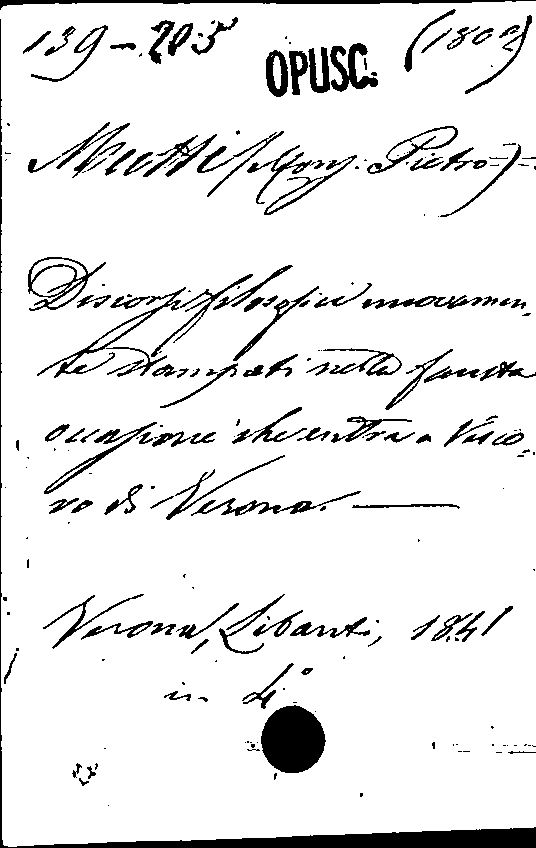 139-205 OPUSC. (1802)
Mutti (Mons. Pietro)
Discorsi filosofici nuovamen,
te stampati nella fausta
occasione che entra a Vesco,
vo di Verona.
Verona, Libanti, 1841
in 4°